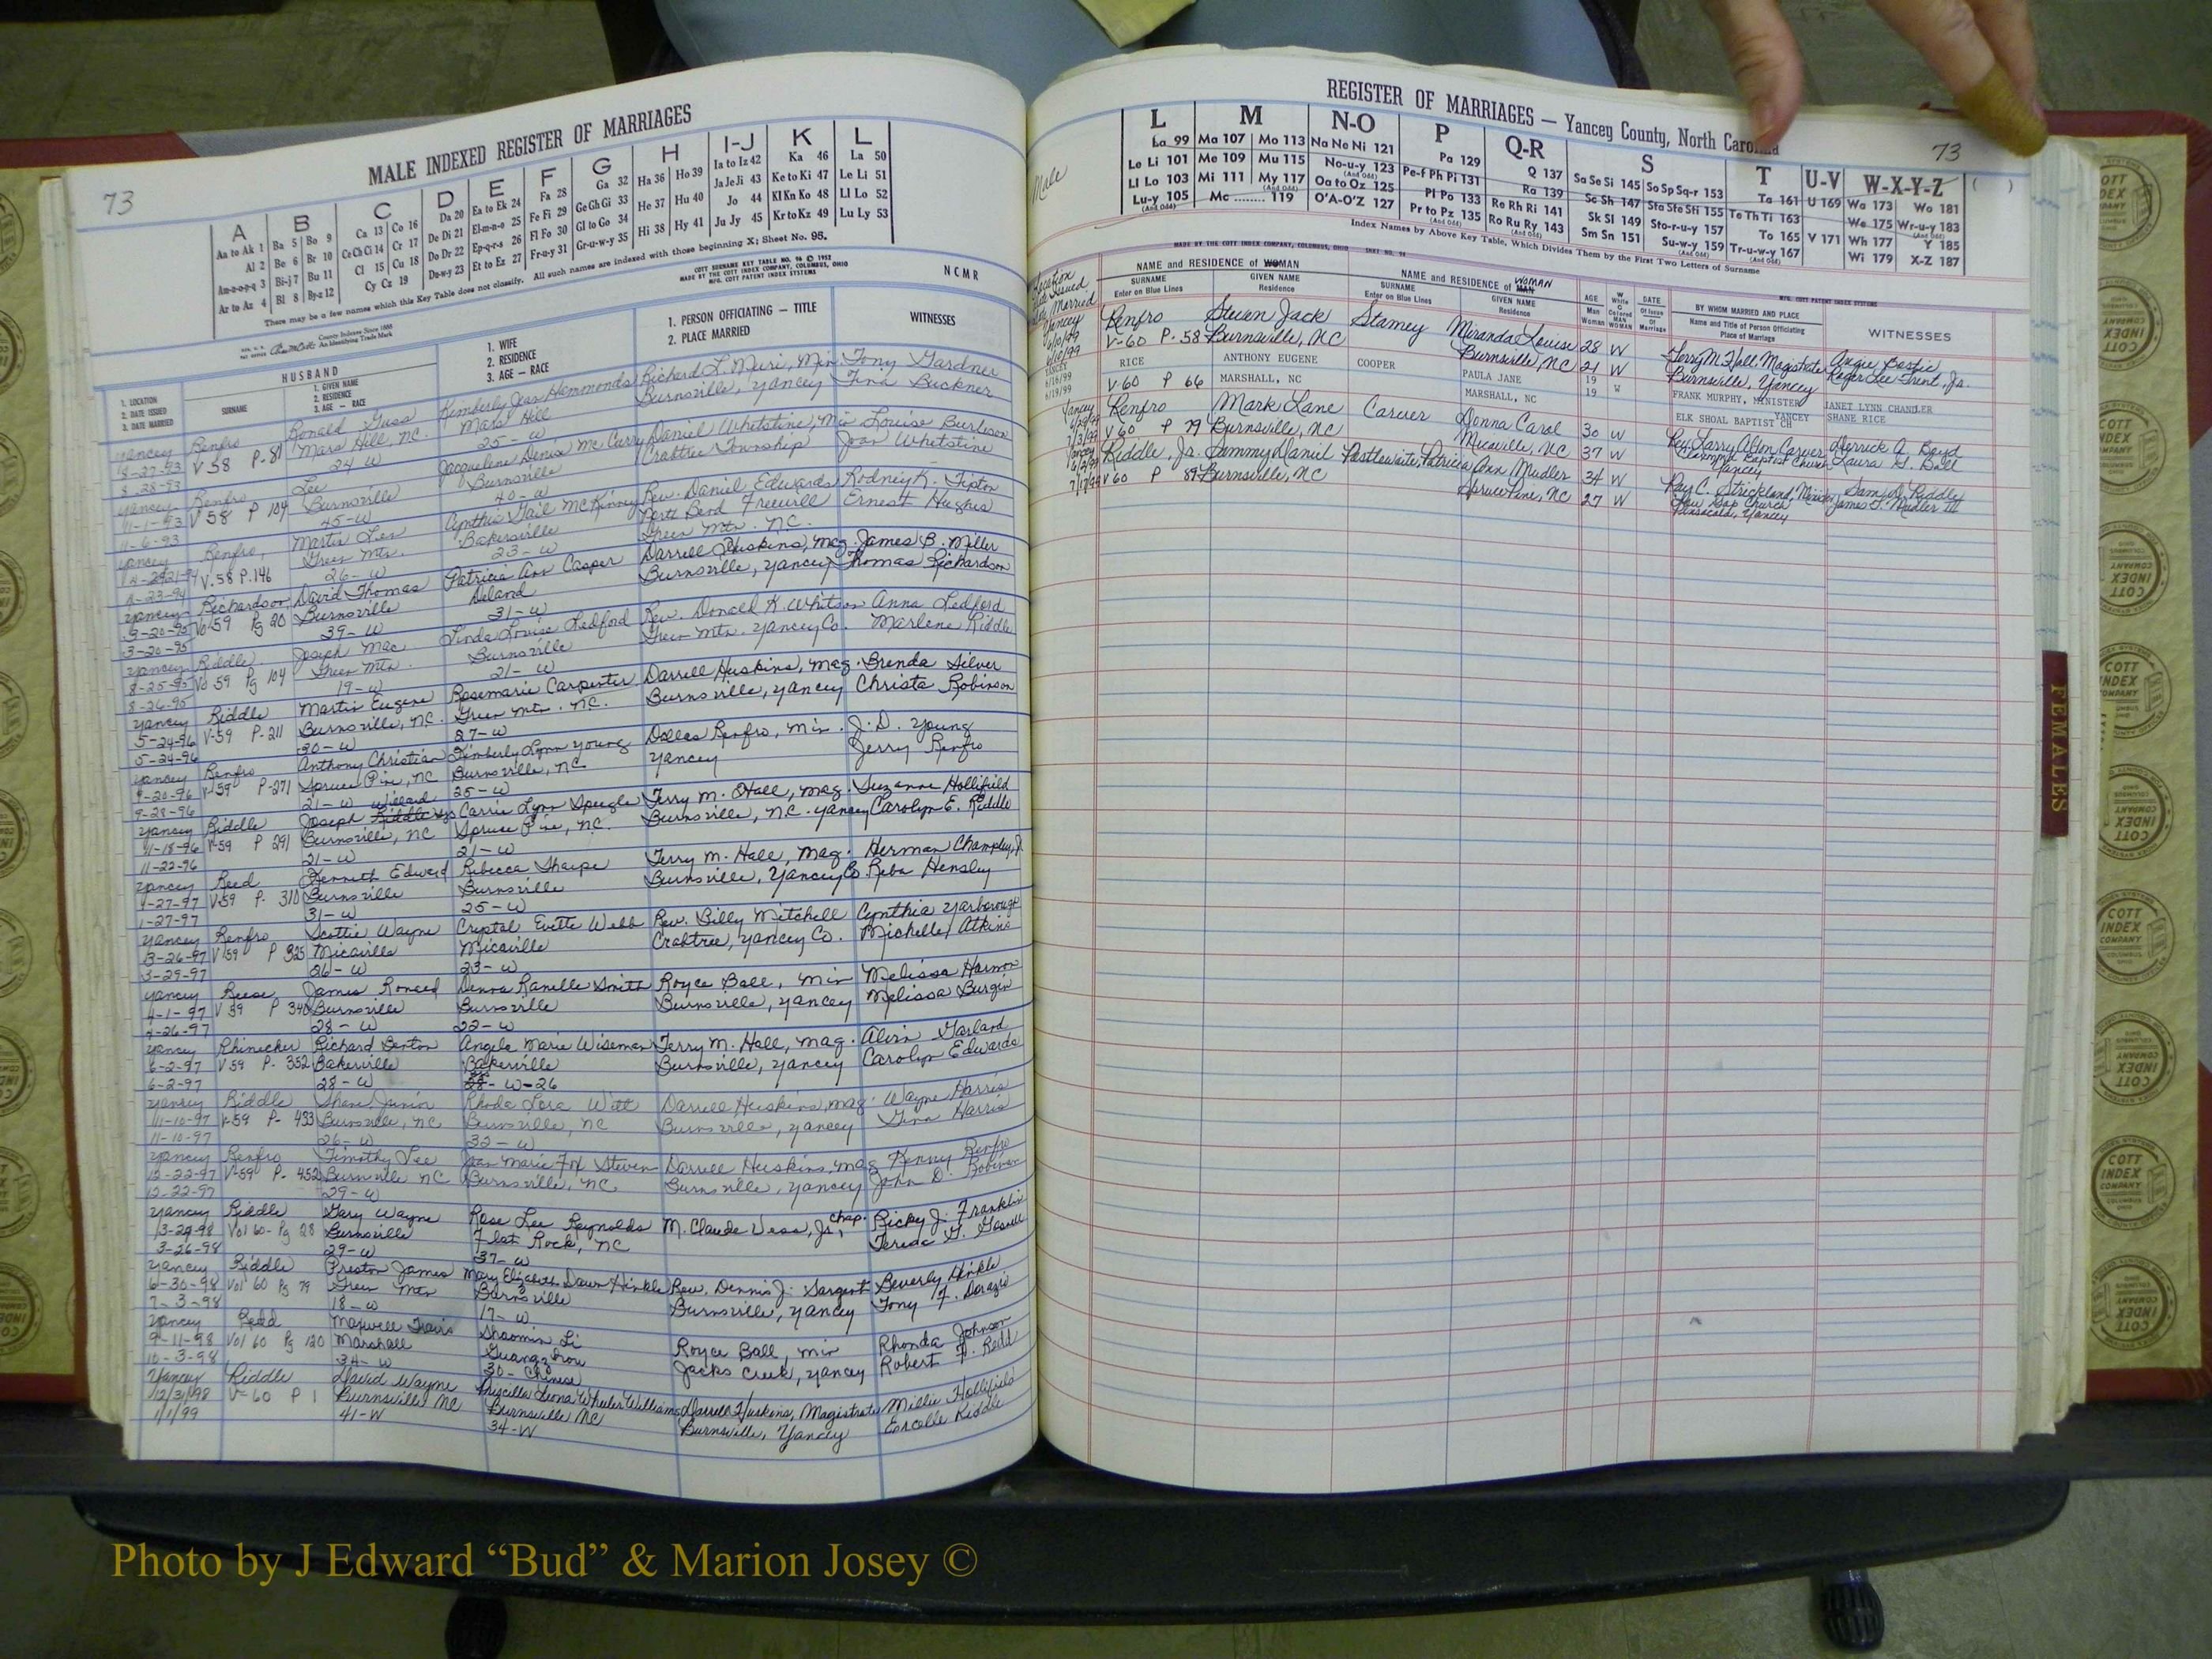 MALE INDEXED REGISTER OF MARRIAGES
73
A B C D E F G H I-J K L
Aa to Ak 1 Ba 5 Bo 9 Ca 13 Co 16 Da 20 Ea to Ek 24 Fa 28 Ga 32 Ha 36 Ho 39 Ia to Iz 42 Ka 46 La 50
Al 2 Be 6 Br 10 Ce Ch Ci 14 Cr 17 De Di 21 El-m-n-o 25 Fe Fi 29 Ge Gh Gi 33 He 37 Hu 40 Ja Je Ji 43 Ke to Ki 47 Le Li 51
Am-n-o-p-q 3 Bi-j 7 Bu 11 Cl 15 Cu 18 Do Dr 22 Ep-q-r-s 26 Fl Fo 30 Gl to Go 34 Hi 38 Hy 41 Jo 44 Kl Kn Ko 48 Ll Lo 52
Ar to Az 4 Bl 8 By-z 12 Cy Cz 19 Du-w-y 23 Et to Ez 27 Fr-o-y 31 Gr-u-w-y 35 Ju Jy 45 Kr to Kz 49 Lu Ly 53
There may be a few names which this Key Table does not classify. All such names are indexed with those beginning X; Sheet No. 95.
COTT SURNAME KEY TABLE NO. 96 © 1952
MADE BY THE COTT INDEX COMPANY, COLUMBUS, OHIO
MFG. COTT PATENT INDEX SYSTEMS
NCMR
County Indexes Since 1888
An Identifying Trade Mark
1. LOCATION
2. DATE ISSUED
3. DATE MARRIED
HUSBAND
SURNAME
1. GIVEN NAME
2. RESIDENCE
3. AGE — RACE
1. WIFE
2. RESIDENCE
3. AGE — RACE
1. PERSON OFFICIATING — TITLE
2. PLACE MARRIED
WITNESSES
Yancey Renfro Ronald Kimberly Jean Hammonds Richard L. Min Tony Gardner
8-27-93 V 58 P-81 Mars Hill, NC. Mars Hill Burnsville, Yancey Tina Buckner
8-28-93 24 W 25-W
Yancey Renfro Lee Jacquelene Denise McCurry Daniel Whetstine, Min Louise Burleson
11-1-93 V 58 P 104 Burnsville Burnsville Crabtree Township Joan Whetstine
11-6-93 45-W 40-W
Yancey Renfro, Martin Len Cynthia Gail McKinney Rev. Daniel Edwards Rodney K. Tipton
V.58 P.146 Green Mtn. Bakersville Freewill Ernest Hughes
4-23-94 26-W 23-W Green Mtn. NC.
Yancey Richardson David Thomas Patricia Ann Casper Darrell Huskins, Mag. James B. Miller
3-20-95 Vo 59 Pg 20 Burnsville Deland Burnsville, Yancey Thomas Richardson
3-20-95 39-W 31-W
Yancey Riddle Joseph Mac Linda Louise Ledford Rev. Donald K. Whitson Anna Ledford
8-25-95 Vo 59 Pg 104 Green Mtn. Burnsville Green Mtn. Yancey Co. Marlene Riddle
8-26-95 19-W 21-W
Yancey Riddle Martin Eugene Rosemarie Carpenter Darrell Huskins, Mag. Brenda Silver
5-24-96 V-59 P-211 Burnsville, NC. Green Mtn. NC. Burnsville, Yancey Christa Robinson
5-24-96 30-W 27-W
Yancey Renfro Anthony Christian Kimberly Lynn Young Dallas Renfro, Min. J.D. Young
9-20-96 V-59 P-271 Spruce Pine, NC Burnsville, NC Yancey Jerry Renfro
9-28-96 21-W 25-W
Yancey Riddle Joseph Willard Carrie Lynn Speagle Terry M. Hall, Mag. Suzanne Hollifield
11-18-96 V-59 P 291 Burnsville, NC Spruce Pine, NC. Burnsville, N.C. Yancey Carolyn E. Riddle
11-22-96 21-W 21-W
Yancey Reed Kenneth Edward Rebecca Sharpe Terry M. Hall, Mag. Herman Champley, Jr.
1-27-97 V-59 P. 310 Burnsville Burnsville Burnsville, Yancey Co. Reba Hensley
1-27-97 31-W 25-W
Yancey Renfro Scottie Wayne Crystal Evette Webb Rev. Billy Mitchell Cynthia Yarborough
3-26-97 V 59 P 325 Micaville Micaville Crabtree, Yancey Co. Michelle Atkins
3-29-97 26-W 23-W
Yancey Reese James Ronald Donna Ranelle Smith Royce Ball, Min Melissa Harmon
4-1-97 V 59 P 340 Burnsville Burnsville Burnsville, Yancey Melissa Burgin
4-26-97 28-W 22-W
Yancey Rhinecker Richard Denton Angela Marie Wiseman Terry M. Hall, Mag. Alvin Garland
6-2-97 V 59 P. 352 Bakersville Bakersville Burnsville, Yancey Carolyn Edwards
6-2-97 28-W 28-W-26
Yancey Riddle Shane Junior Rhoda Lora Witt Darrell Huskins, Mag. Wayne Harris
11-10-97 V-59 P- 433 Burnsville, NC Burnsville, NC Burnsville, Yancey Harris
11-10-97 26-W 32-W
Yancey Renfro Timothy Lee Joan Marie Fox Steven Darrell Huskins, Mag Kenny Renfro
12-22-97 V-59 P- 452 Burnsville NC Burnsville, NC Burnsville, Yancey John D. Robinson
12-22-97 29-W
Yancey Riddle Gary Wayne Rose Lee Reynolds M. Claude Vess, Jr., Chap. Ricky J. Franklin
3-24-98 Vol 60- Pg 28 Burnsville Flat Rock, NC Teresa G. Gosnell
3-26-98 29-W 37-W
Yancey Riddle Preston James Mary Elizabeth Dawn Hinkle Rev. Dennis J. Sargent Beverly Hinkle
6-30-98 Vol 60 Pg 79 Green Mtn Burnsville Burnsville, Yancey Tony F.
7-3-98 18-W 17-W
Yancey Redd Maxwell Travis Shaomin Li Royce Ball, Min Rhonda Johnson
9-11-98 Vol 60 Pg 120 Marshall Guangzhou Jacks Creek, Yancey Robert F. Redd
10-3-98 34-W 30-Chinese
Yancey Riddle David Wayne Priscilla Leona Wheeler Williams Darrell Huskins, Magistrate Millie Hollifield
12/31/98 V-60 P 1 Burnsville NC Burnsville NC Burnsville, Yancey Riddle
1/1/99 41-W 34-W
REGISTER OF MARRIAGES — Yancey County, North Carolina
73
Male
L M N-O P Q-R S T U-V W-X-Y-Z ( )
La 99 Ma 107 Mo 113 Na Ne Ni 121 Pa 129 Q 137 Sa Se Si 145 So Sp Sq-r 153 Ta 161 U 169 Wa 173 Wo 181
Le Li 101 Me 109 Mu 115 No-u-y 123 (And Odd) Pe-f Ph Pi 131 Ra 139 Sc Sh 147 Sta Ste Sti 155 Te Th Ti 163 We 175 Wr-u-y 183 (And Odd)
Ll Lo 103 Mi 111 My 117 (And Odd) Oa to Oz 125 Pl Po 133 Re Rh Ri 141 Sk Sl 149 Sto-r-u-y 157 To 165 V 171 Wh 177 Y 185
Lu-y 105 (And Odd) Mc ........ 119 O'A-O'Z 127 Pr to Pz 135 (And Odd) Ro Ru Ry 143 (And Odd) Sm Sn 151 Su-w-y 159 (And Odd) Tr-u-w-y 167 (And Odd) Wi 179 X-Z 187
Index Names by Above Key Table, Which Divides Them by the First Two Letters of Surname
MADE BY THE COTT INDEX COMPANY, COLUMBUS, OHIO
MFG. COTT PATENT INDEX SYSTEMS
Location
Date Issued
Date Married
NAME and RESIDENCE of WOMAN
SURNAME
Enter on Blue Lines
GIVEN NAME
Residence
NAME and RESIDENCE of MAN WOMAN
SURNAME
Enter on Blue Lines
GIVEN NAME
Residence
AGE
Man
Woman
W White
C Colored
MAN
WOMAN
DATE
Of Issue
Of Marriage
BY WHOM MARRIED AND PLACE
Name and Title of Person Officiating
Place of Marriage
WITNESSES
Yancey Renfro Steven Jack Stamey Miranda Louise 28 W Terry M. Hall, Magistrate Angie Bostic
6/10/99 V-60 P-58 Burnsville, NC Burnsville, NC 21 W Burnsville, Yancey Roger Lee Trent, Jr.
6/10/99
YANCEY RICE ANTHONY EUGENE COOPER PAULA JANE 19 FRANK MURPHY, MINISTER JANET LYNN CHANDLER
6/16/99 V 60 P 66 MARSHALL, NC MARSHALL, NC 19 W ELK SHOAL BAPTIST CH YANCEY SHANE RICE
6/19/99
Yancey Renfro Mark Lane Carver Donna Carol 30 W Rev Larry Alton Carver Derrick A. Boyd
6/29/99 V 60 P 79 Burnsville, NC Micaville, NC 37 W Baptist Church Laura G. Ball
7/3/99 Yancey
Yancey Riddle, Jr. Sammy Daniel Postlewaite Patricia Ann Mudler 34 W Ray C. Strickland, Minister Sam D. Riddle
V 60 P 89 Burnsville, NC Spruce Pine, NC 27 W Low Gap Church James T. Mudler III
7/17/99 Pensacola, Yancey
FEMALES
COTT INDEX COMPANY COLUMBUS OHIO
Photo by J Edward “Bud” & Marion Josey ©